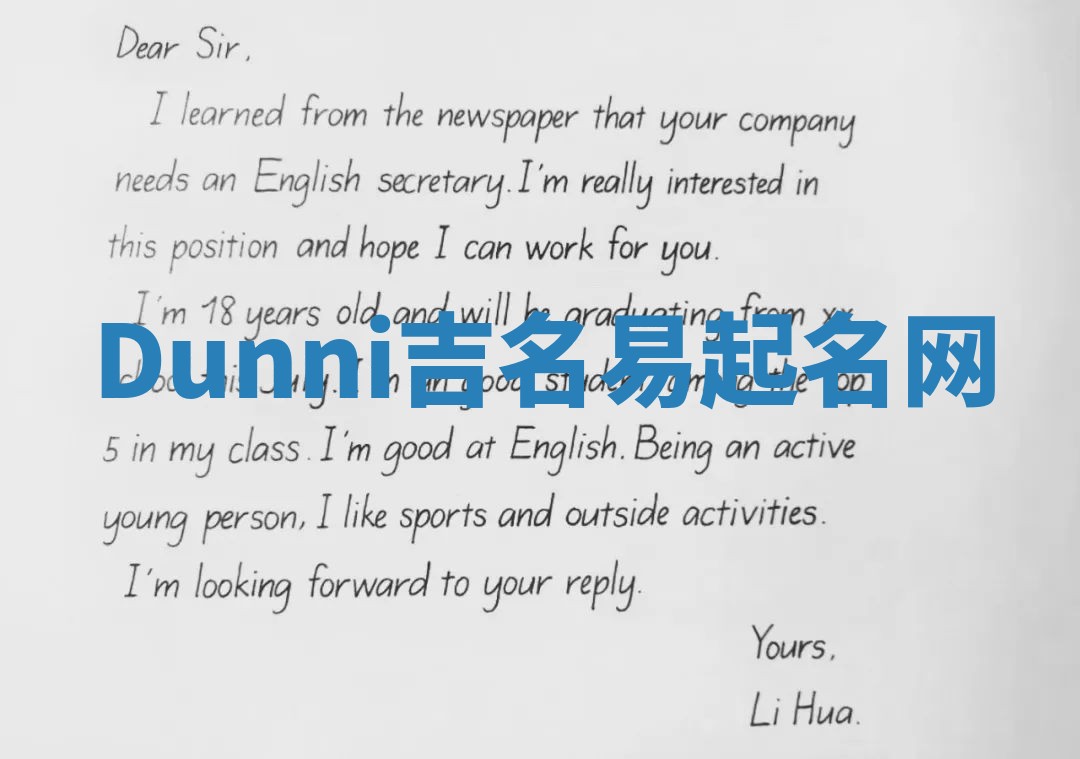 Dear Sir,
I learned from the newspaper that your company
needs an English secretary. I'm really interested in
this position and hope I can work for you.
I'm 18 years old and will be graduating from xx
Dunni吉名易起名网
this July. I'm an good student among the top
5 in my class. I'm good at English. Being an active
young person, I like sports and outside activities.
I'm looking forward to your reply.
Yours,
Li Hua.